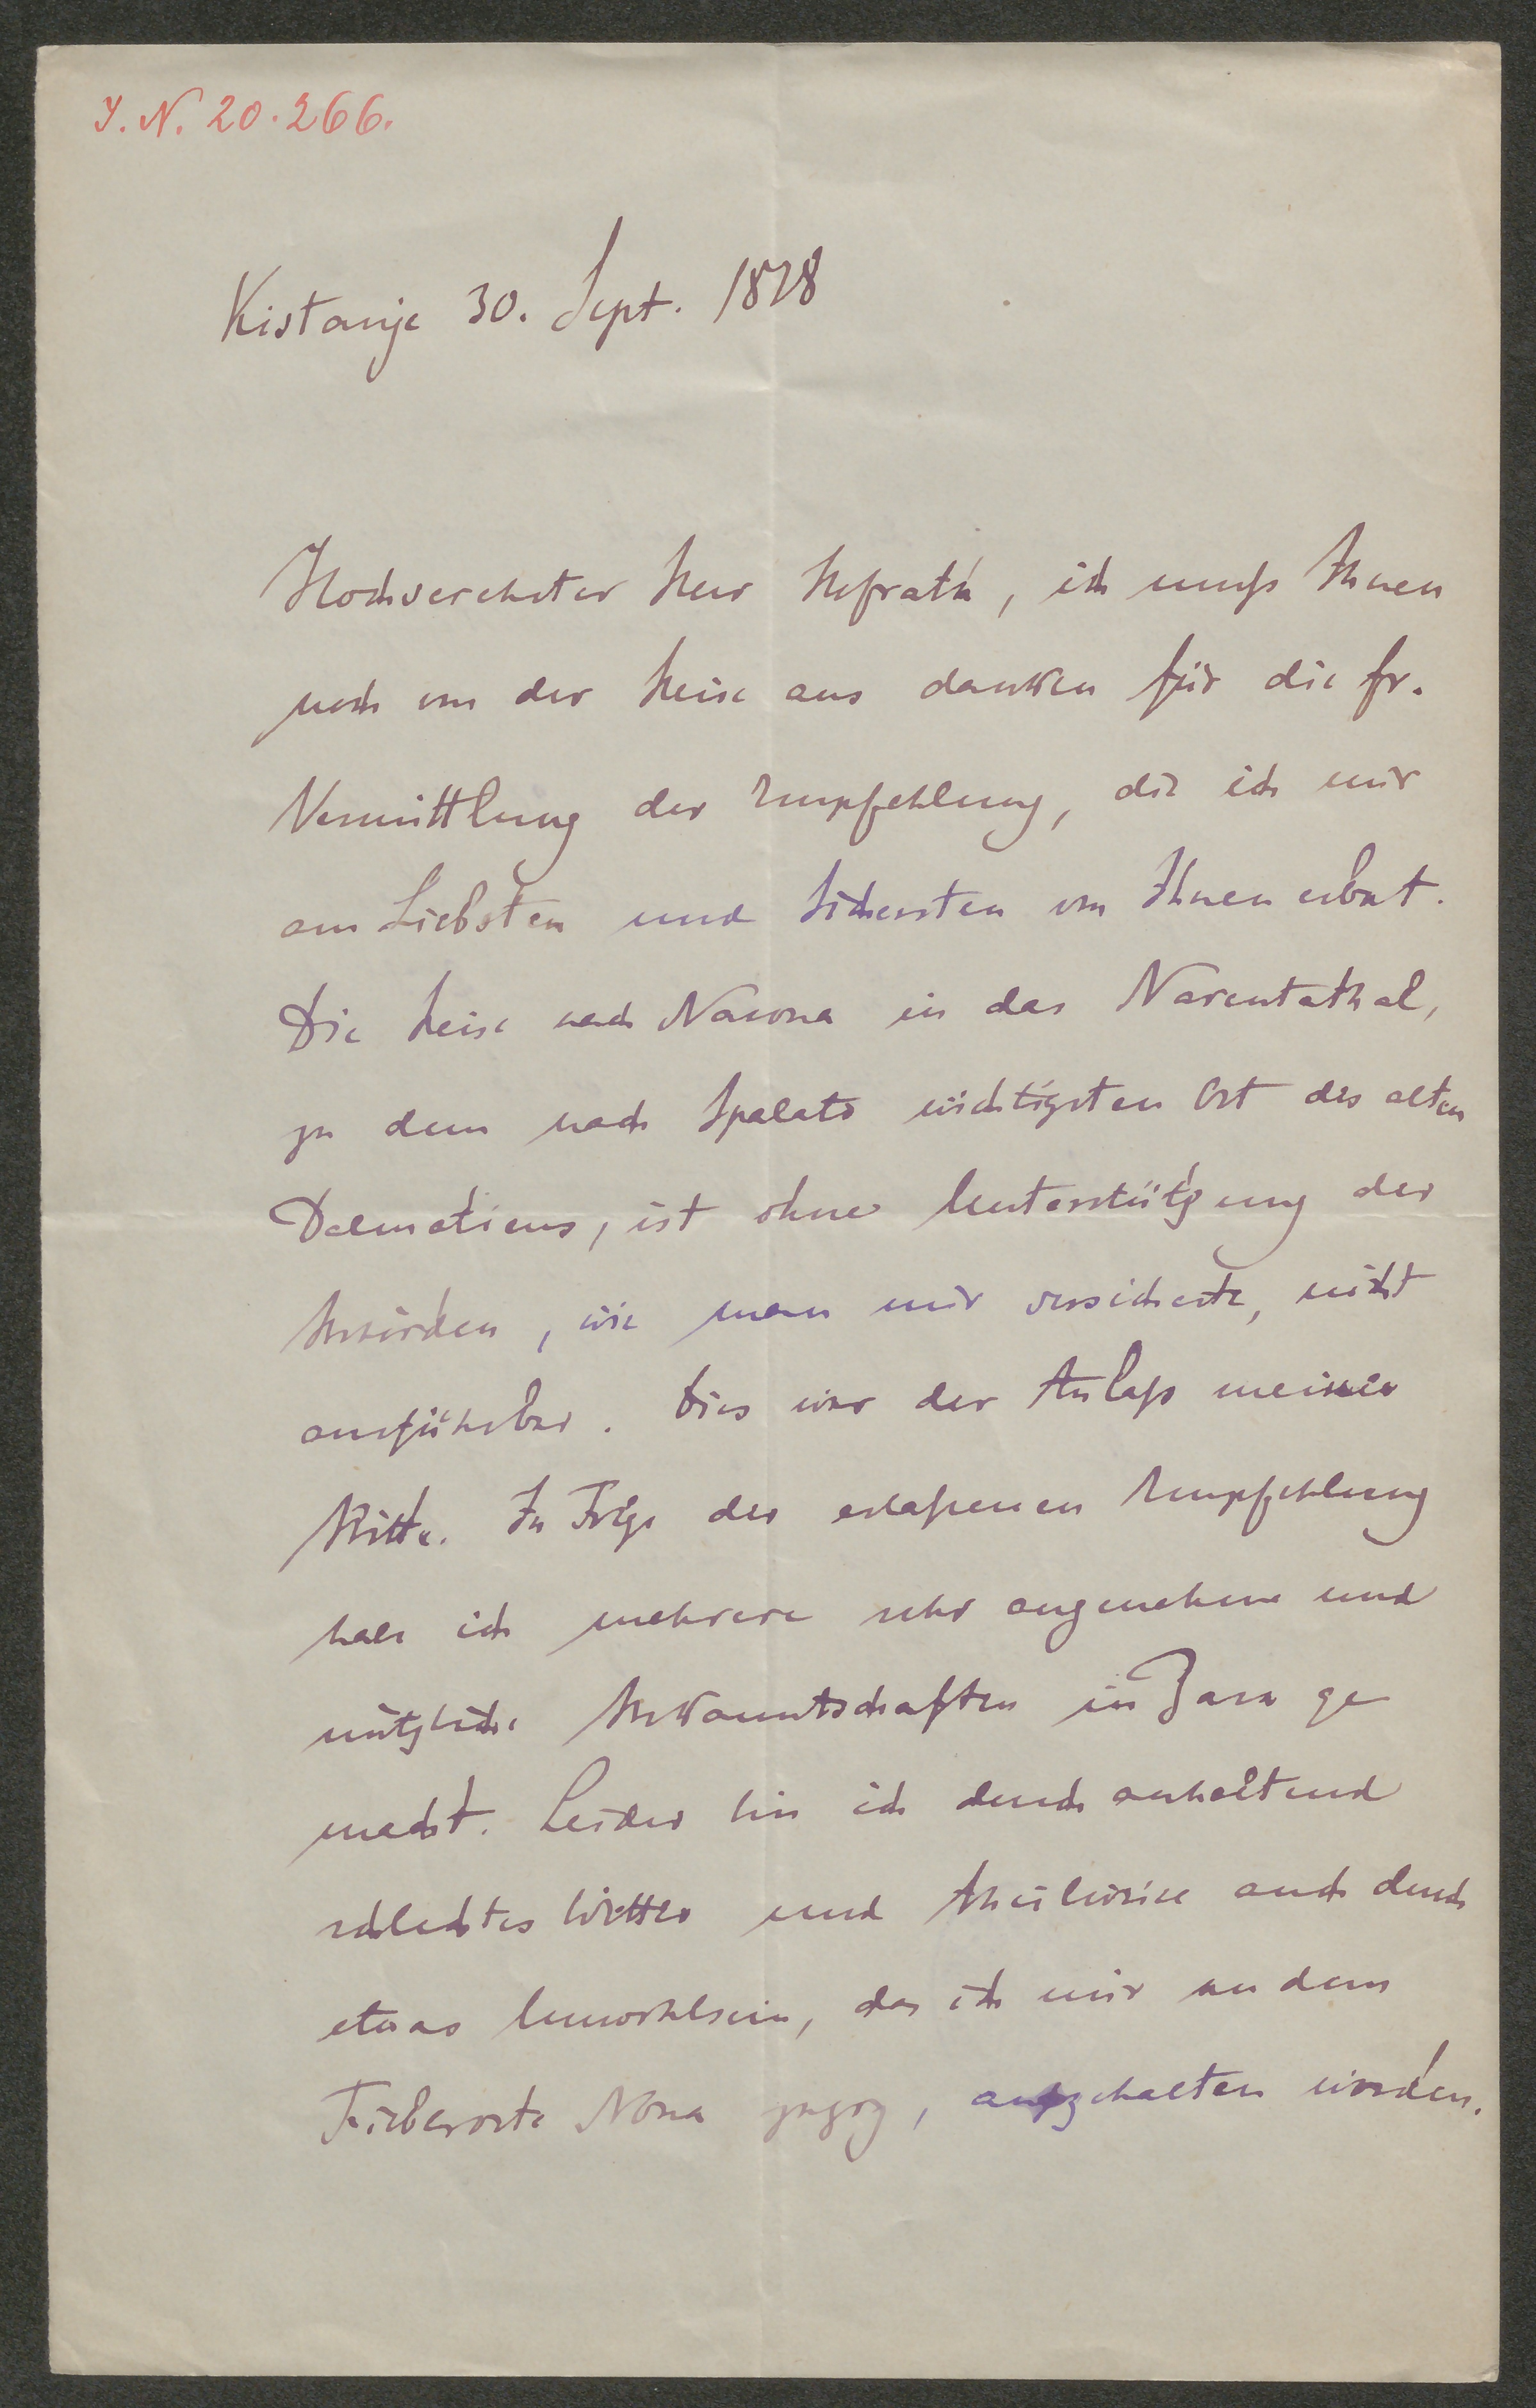 J. N. 20.266.
Kistanje 30. Sept. 1878
Hochverehrter Herr Hofrath, ich muß Ihnen
noch von der Reise aus danken für die fr.
Vermittlung der Empfehlung, die ich mir
am Liebsten und Sichersten von Ihnen erbat.
Die Reise nach Narona in das Narentathal,
zu dem nach Spalato wichtigsten Ort des alten
Dalmatiens, ist ohne Unterstützung der
Behörden, wie man mir versicherte, nicht
ausführbar. Dies war der Anlaß meiner
Bitte. In Folge der erlaßenen Empfehlung
habe ich mehrere sehr angenehme und
nützliche Bekanntschaften in Zara ge
macht. Leider bin ich durch anhaltend
schlechtes Wetter und theilweise auch durch
etwas Unwohlsein, das ich mir an dem
Fieberorte Nona zuzog, aufgehalten worden.